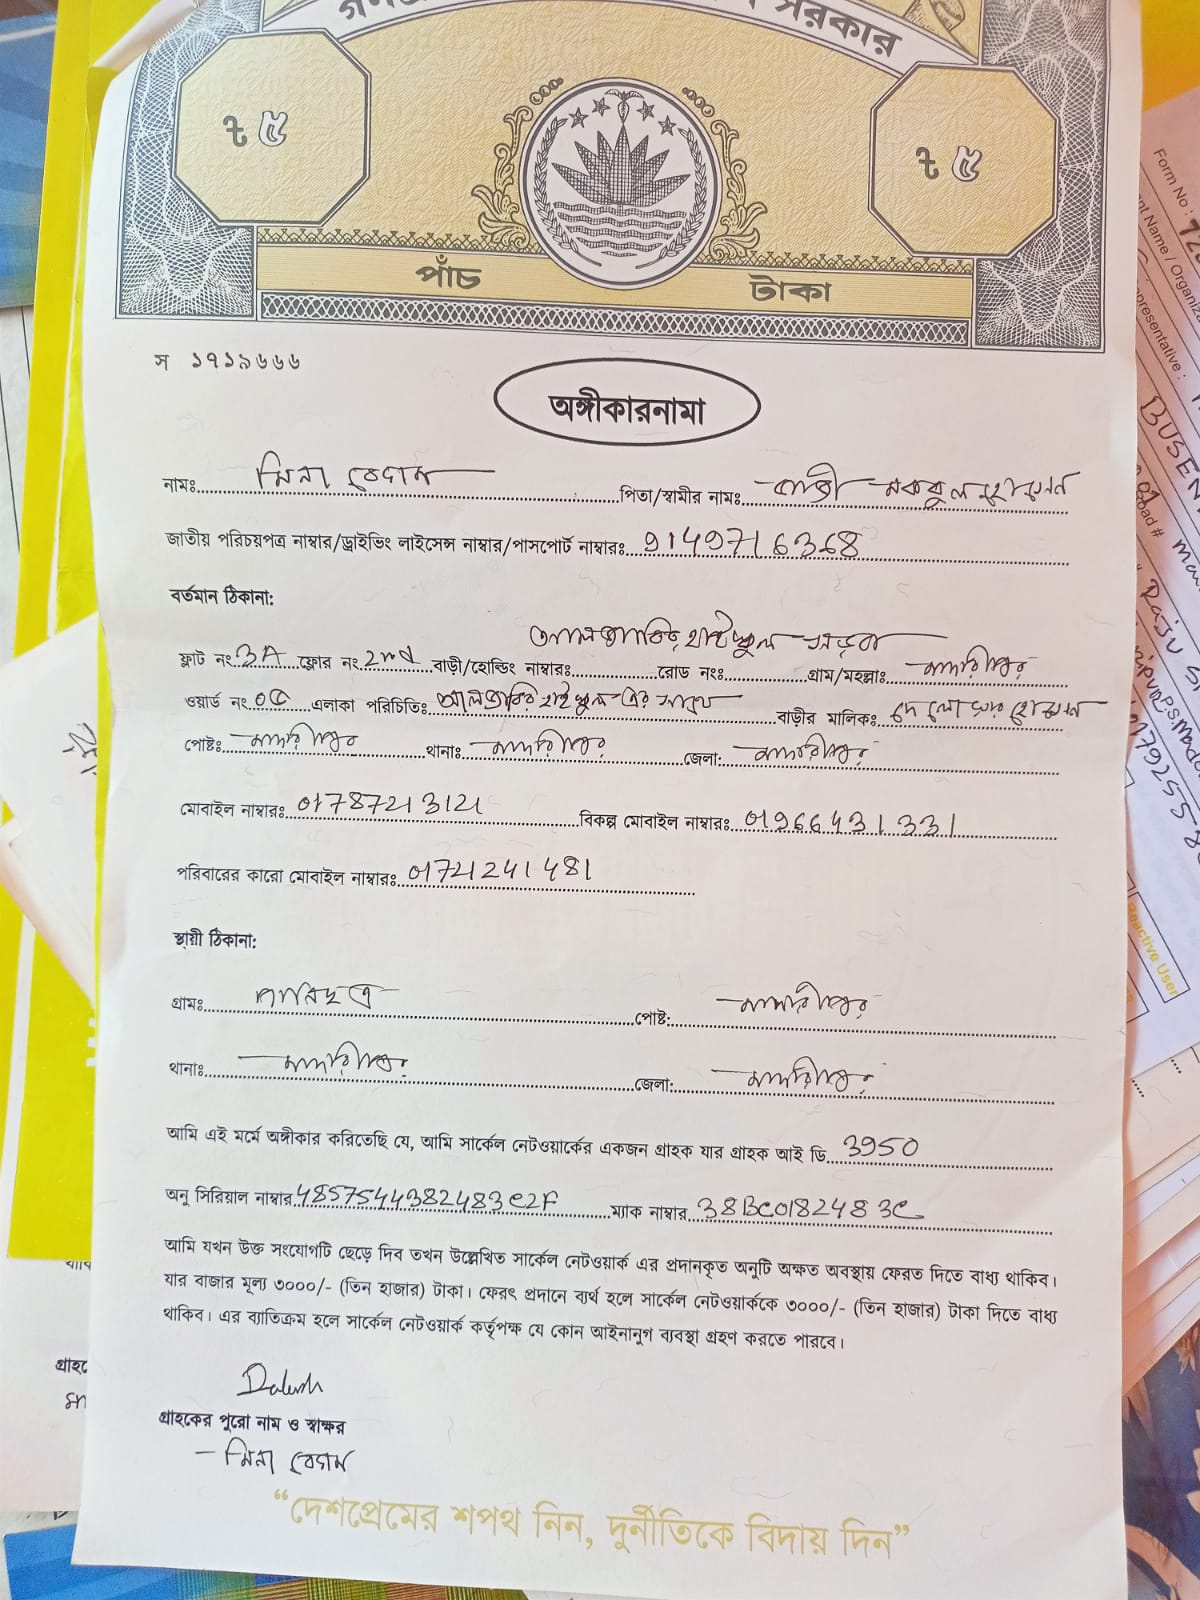 সরকার
৳ ৫
৳ ৫
পাঁচ টাকা
স ১৭১৯৬৬৬
অঙ্গীকারনামা
নামঃ মিনা বেগম পিতা/স্বামীর নামঃ কাজী মকবুল হোসেন
জাতীয় পরিচয়পত্র নাম্বার/ড্রাইভিং লাইসেন্স নাম্বার/পাসপোর্ট নাম্বারঃ 9149716368
বর্তমান ঠিকানা:
হাই স্কুল সড়ক
ফ্লাট নং 3A ফ্লোর নং 2nd বাড়ী/হোল্ডিং নাম্বারঃ রোড নংঃ গ্রাম/মহল্লাঃ মাদারীপুর
ওয়ার্ড নং ০৫ এলাকা পরিচিতিঃ হাই স্কুল এর সাথে বাড়ীর মালিকঃ দেলোয়ার হোসেন
পোষ্টঃ মাদারীপুর থানাঃ মাদারীপুর জেলা: মাদারীপুর
মোবাইল নাম্বারঃ 01787213121 বিকল্প মোবাইল নাম্বারঃ 01966431331
পরিবারের কারো মোবাইল নাম্বারঃ 01721241481
স্থায়ী ঠিকানা:
গ্রামঃ পোষ্ট: মাদারীপুর
থানাঃ মাদারীপুর জেলা: মাদারীপুর
আমি এই মর্মে অঙ্গীকার করিতেছি যে, আমি সার্কেল নেটওয়ার্কের একজন গ্রাহক যার গ্রাহক আই ডি 3950
অনু সিরিয়াল নাম্বার 4857544382483C2F ম্যাক নাম্বার 38BC0182483C
আমি যখন উক্ত সংযোগটি ছেড়ে দিব তখন উল্লেখিত সার্কেল নেটওয়ার্ক এর প্রদানকৃত অনুটি অক্ষত অবস্থায় ফেরত দিতে বাধ্য থাকিব।
যার বাজার মূল্য ৩০০০/- (তিন হাজার) টাকা। ফেরৎ প্রদানে ব্যর্থ হলে সার্কেল নেটওয়ার্ককে ৩০০০/- (তিন হাজার) টাকা দিতে বাধ্য
থাকিব। এর ব্যাতিক্রম হলে সার্কেল নেটওয়ার্ক কর্তৃপক্ষ যে কোন আইনানুগ ব্যবস্থা গ্রহণ করতে পারবে।
গ্রাহকের পুরো নাম ও স্বাক্ষর
- মিনা বেগম
“দেশপ্রেমের শপথ নিন, দুর্নীতিকে বিদায় দিন”
Form No :
Name / Organiz
presentative :
BUSEN
Reactive User